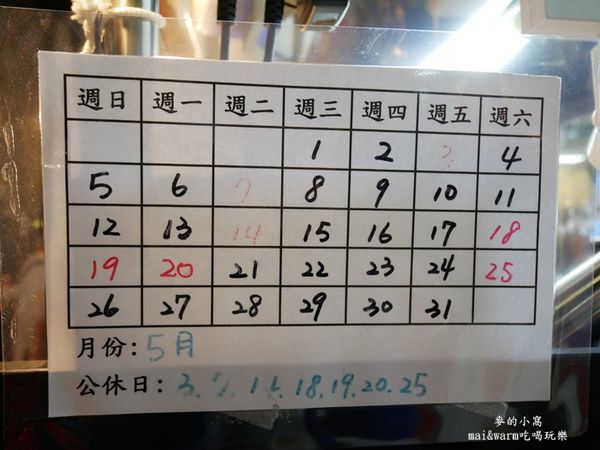 週日 週一 週二 週三 週四 週五 週六
1 2 3 4
5 6 7 8 9 10 11
12 13 14 15 16 17 18
19 20 21 22 23 24 25
26 27 28 29 30 31
月份:5月
公休日:3.7.14.18.19.20.25
麥的小窩
mai&warm吃喝玩樂